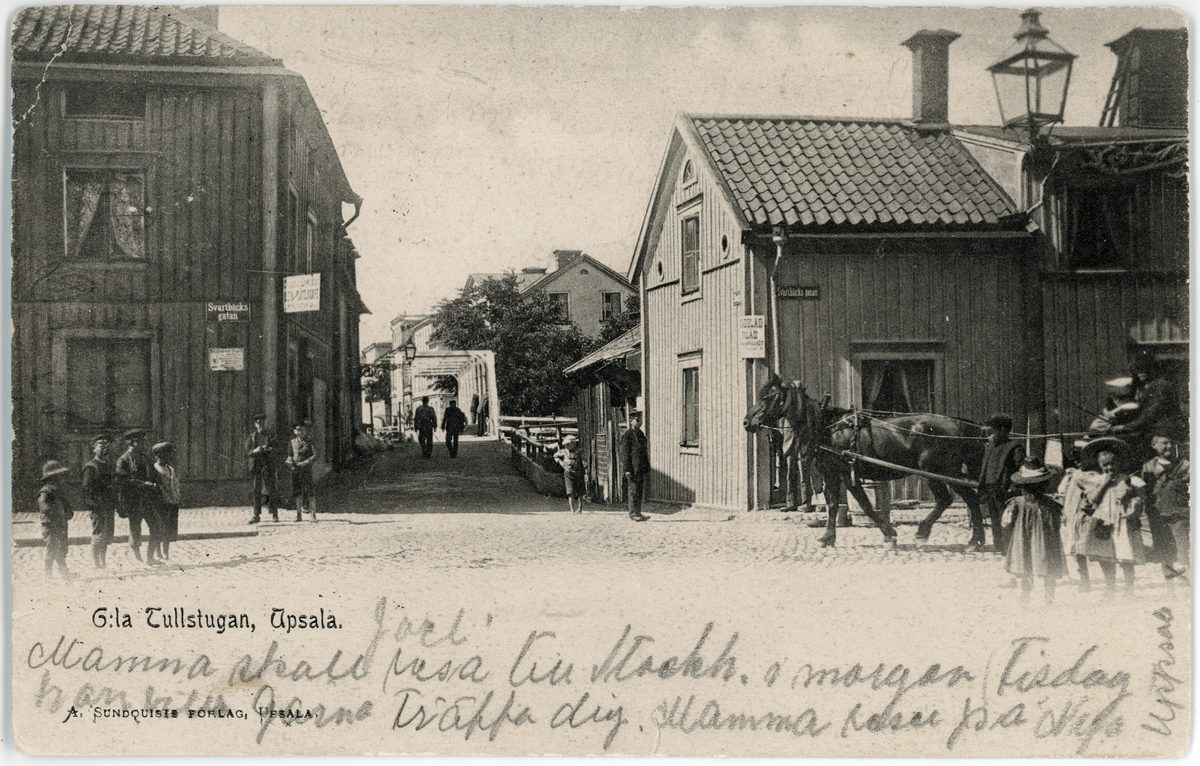 Svartbäcks
gatan
Svartbäcks gatan
G:la Tullstugan, Upsala.
Joel!
Mamma skall resa till Stockh. i morgon (Tisdag
hon vill Gärna Träffa dig. Mamma reser på Nya
A. Sundquists Förlag, Upsala.
Uppsala